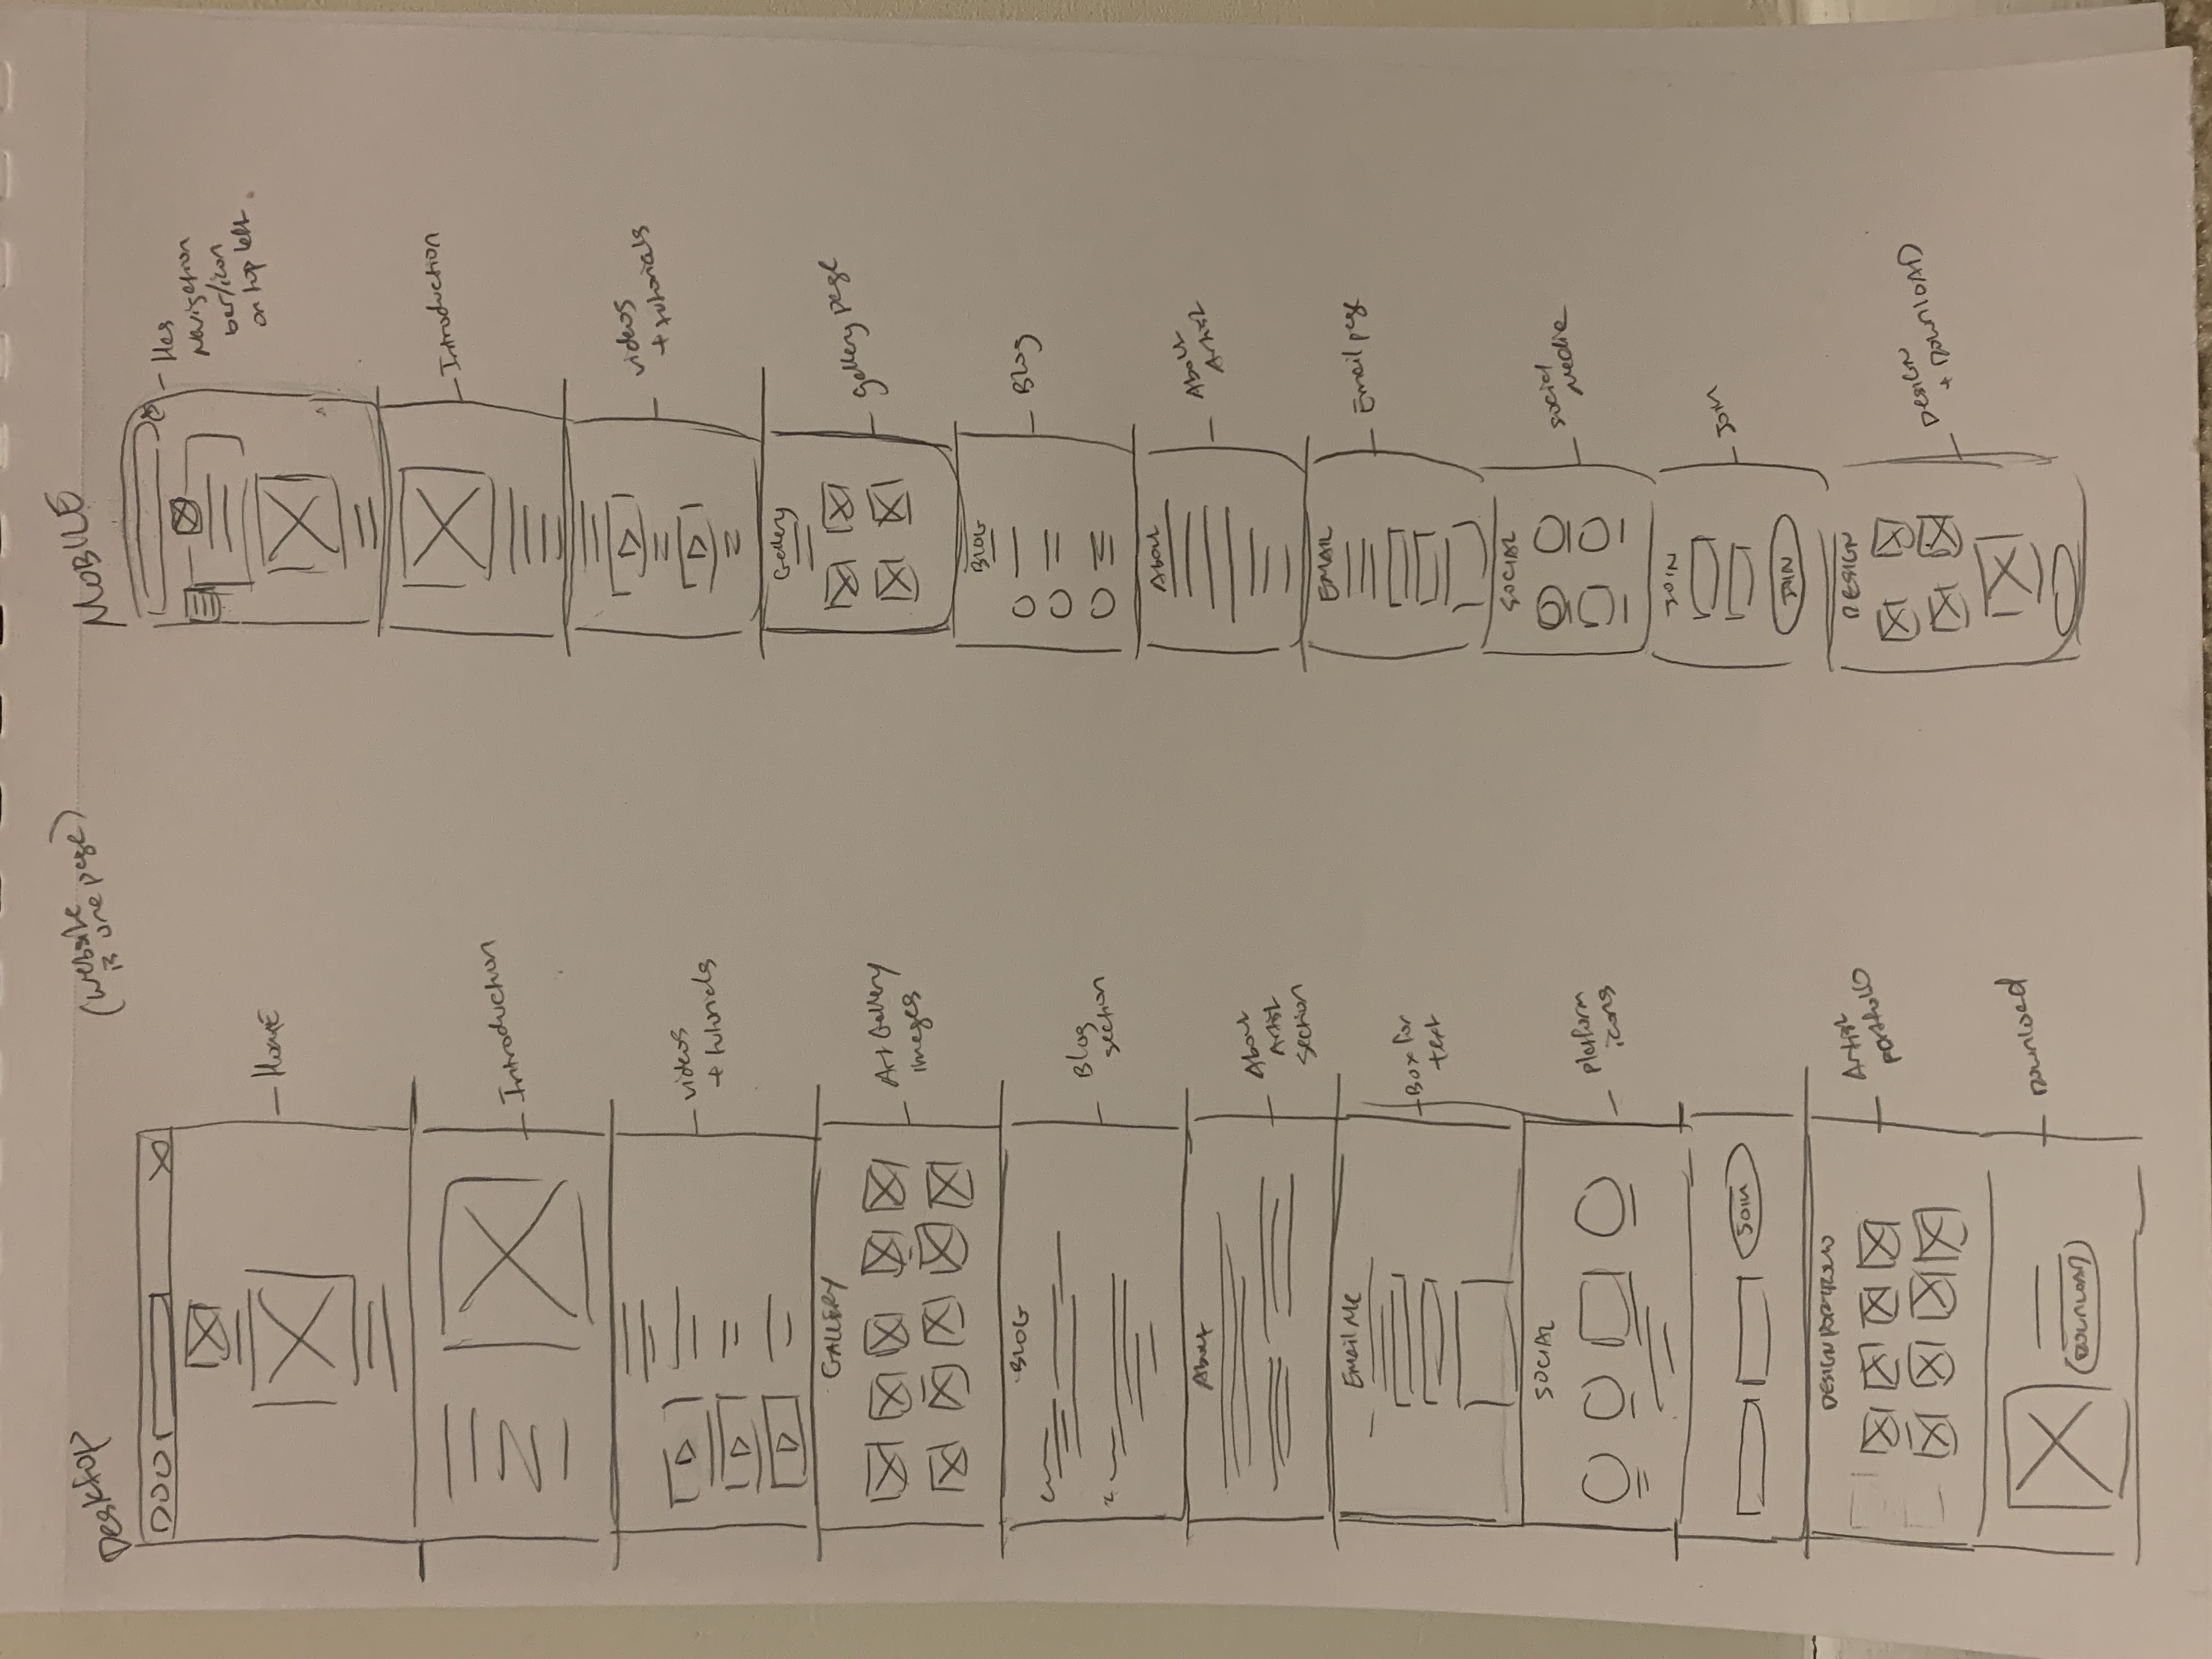 Desktop
(website
is one page)
MOBILE
Home
Introduction
videos
+ tutorials
GALLERY
Art Gallery
images
BLOG
Blog
section
About
About
Artist
section
Email Me
Box for
text
SOCIAL
platform
icons
Join
DESIGN PORTFOLIO
Artist
portfolio
Download
DOWNLOAD
Has
Navigation
bar/icon
on top left.
Introduction
videos
+ tutorials
Gallery
gallery page
BLOG
Blog
About
About
Artist
EMAIL
Email page
SOCIAL
social
media
JOIN
Join
JOIN
DESIGN
DESIGN
+ DOWNLOAD